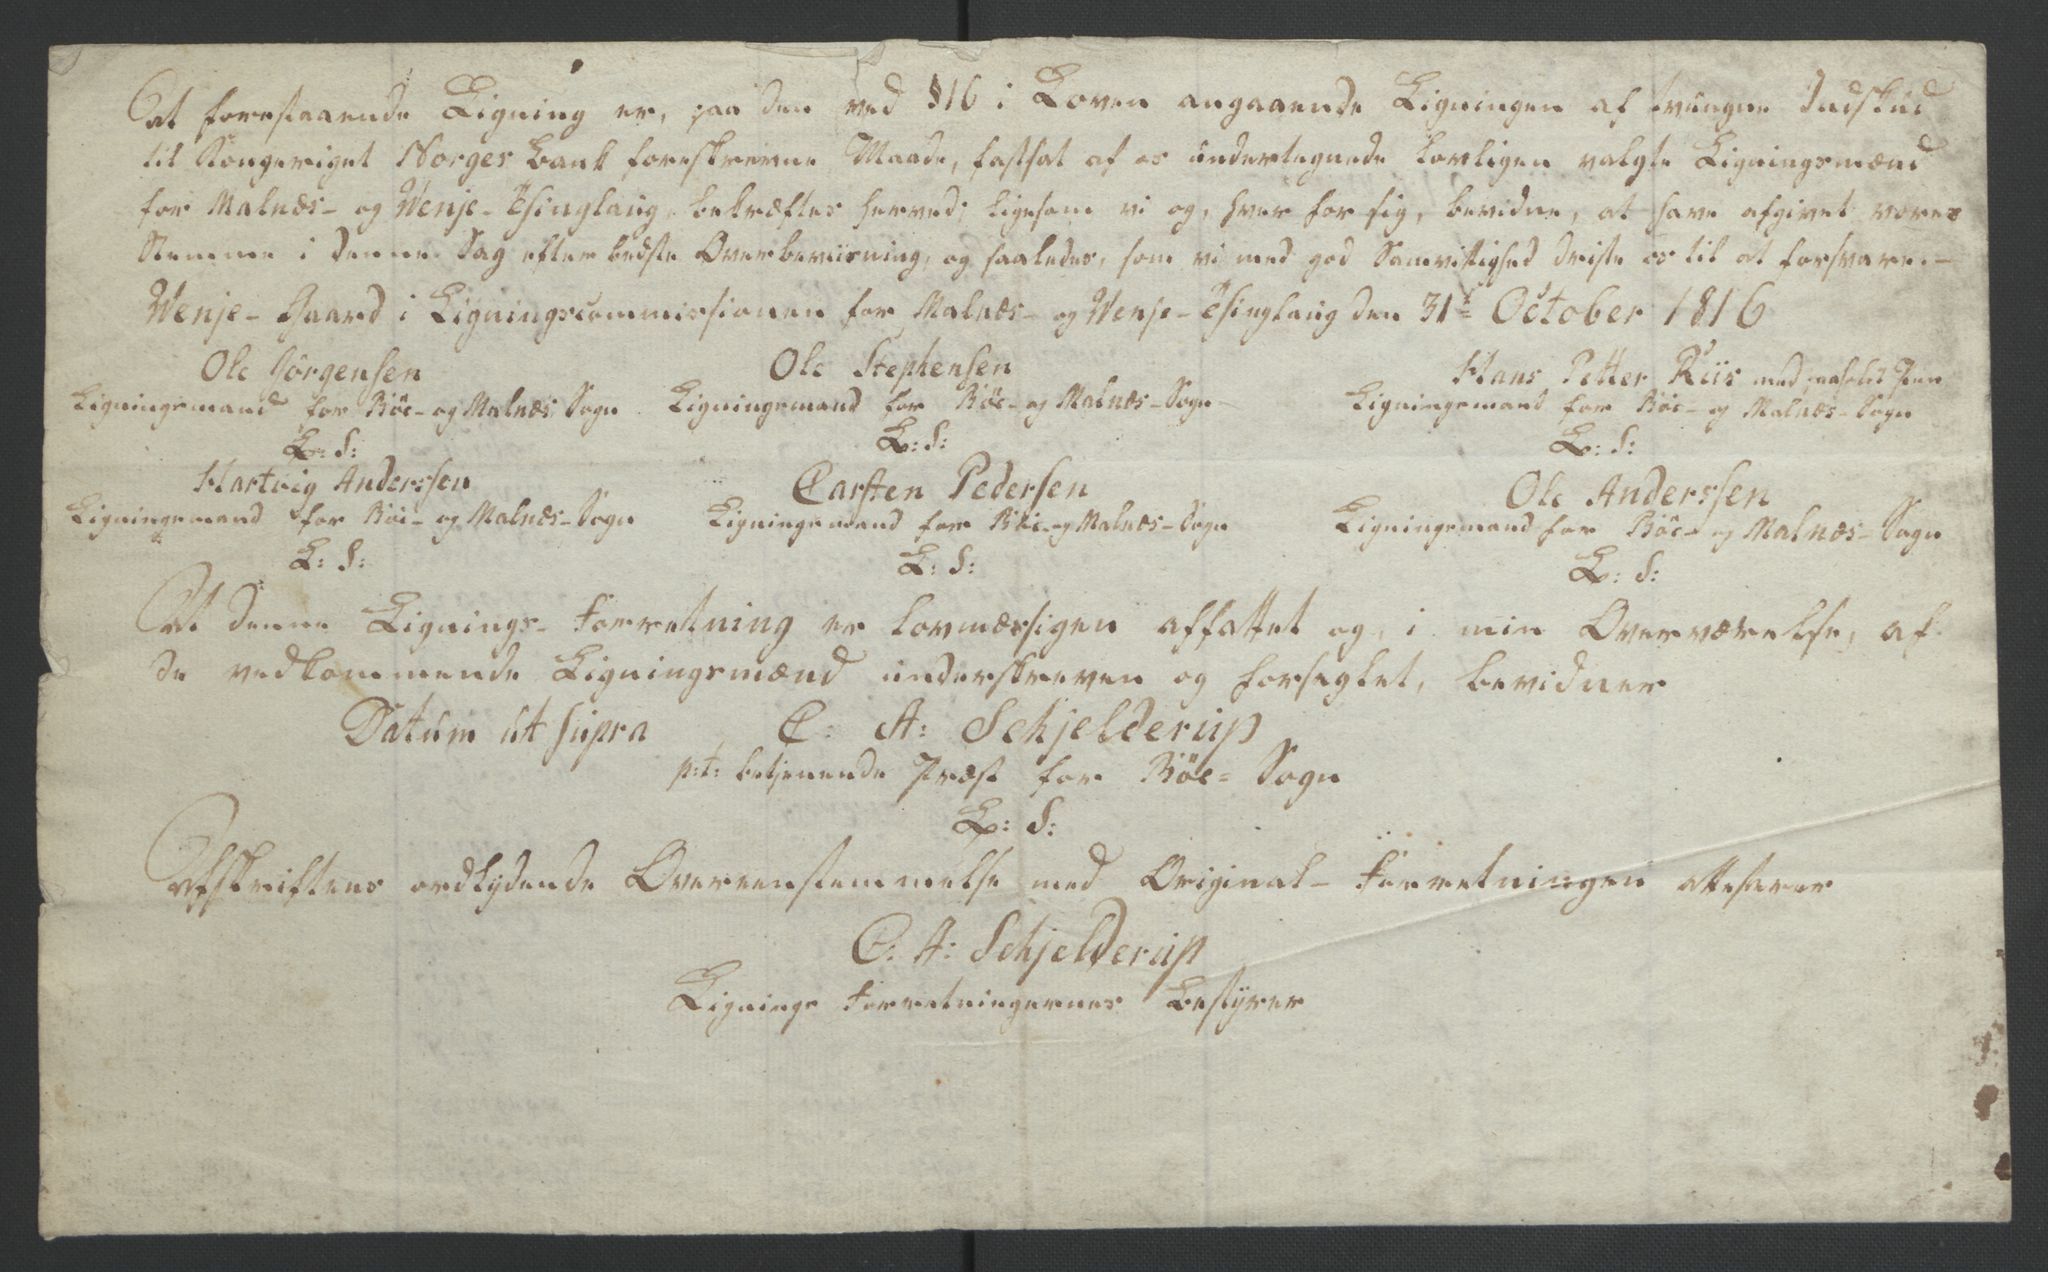 At forestaaende Ligning er, paa den ved §16 i Loven angaaende Ligningen af tvungne Indskud
til Kongeriget Norges Bank foreskrevne Maade, fastsat af os undertegnede lovligen valgte Ligningsmænd
for Malnæs- og Wenje-Thinglaug, bekræftes herved; ligesom vi og, hver for sig, bevidne, at have afgivet vores
Stemme i denne Sag efter bedste Overbeviisning, og saaledes, som vi med god Samvittighed driste os til at forsvare.-
Wenje-Gaard i Ligningscommissionen for Malnæs- og Wenje-Thinglaug den 31te October 1816
Ole Jörgensen Ole Stephensen Hans Petter Riis med paaholt Pen
Ligningsmand for Böe- og Malnæs Sogn Ligningsmand for Böe- og Malnæs-Sogn Ligningsmand for Böe- og Malnæs-Sogn
L: S: L: S: L: S:
Hartvig Anderssen Carsten Pedersen Ole Anderssen
Ligningsmand for Böe- og Malnæs-Sogn Ligningsmand for Böe- og Malnæs-Sogn Ligningsmand for Böe- og Malnæs-Sogn
L: S: L: S: L: S:
At denne Lignings-Forretning er lovmæssigen affattet og, i min Overværelse, af
de vedkommende Ligningsmænd underskreven og forseglet, bevidner
Datum ut supra C: A: Schjelderup
p:t: betjenende Præst for Böe-Sogn
L: S:
Afskriftens ordlydende Overeenstemmelse med Original-Forretningen attesterer
C: A: Schjelderup
Lignings Forretningernes Bestyrer